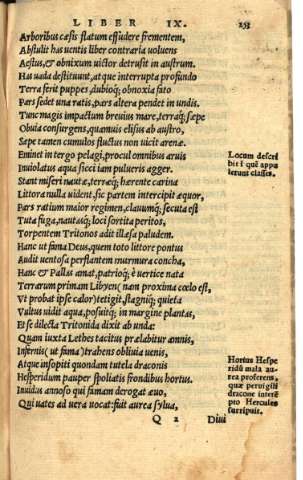 LIBER IX.
253
Arboribus cæsis flatum effudere frementem,
Abstulit has uentis liber contraria uoluens
Aestus, & obnixum uictor detrusit in austrum.
Has uada destituunt, atque interrupta profundo
Terra ferit puppes, dubioq; obnoxia fato
Pars sedet una ratis, pars altera pendet in undis.
Tunc magis impactum breuius mare, terraq; sæpe
Obuia consurgens, quamuis elisus ab austro,
Sæpe tamen cumulos fluctus non uicit arenæ.
Eminet in tergo pelagi, procul omnibus aruis
Inuiolatus aqua sicci iam pulueris agger.
Stant miseri nautæ, terræq; hærente carina
Littora nulla uident. sic partem intercipit æquor,
Pars ratium maior regimen, clauumq; secuta est
Tuta fuga, nautasq; loci sortita peritos,
Torpentem Tritonos adit illæsa paludem.
Hanc ut fama Deus, quem toto littore pontus
Audit uentosa perflantem murmura concha,
Hanc & Pallas amat, patrioq; è uertice nata
Terrarum primam Libyen (nam proxima cœlo est,
Vt probat ipse calor) tetigit, stagniq; quieta
Vultus uidit aqua, posuitq; in margine plantas,
Et se dilecta Tritonida dixit ab unda:
Quam iuxta Lethes tacitus prælabitur amnis,
Infernis (ut fama) trahens obliuia uenis,
Atque insopiti quondam tutela draconis
Hesperidum pauper spoliatis frondibus hortus.
Inuidus annoso qui famam derogat æuo,
Qui uates ad uera uocat: fuit aurea sylua,
Q 2
Diui
Locum descri
bit i quē appu
lerunt classes.
Hortus Hespe
ridū mala au-
rea proferens,
quæ peruigili
dracone intere͂
pto Hercules
surripuit.